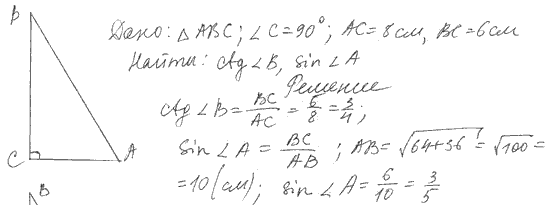 B
Дано: △ABC; ∠C=90°; AC=8см, BC=6см
Найти: ctg∠B, sin∠A
Решение
ctg∠B = BC/AC = 6/8 = 3/4;
C A
sin∠A = BC/AB; AB = √64+36 = √100 =
B
=10(см); sin∠A = 6/10 = 3/5